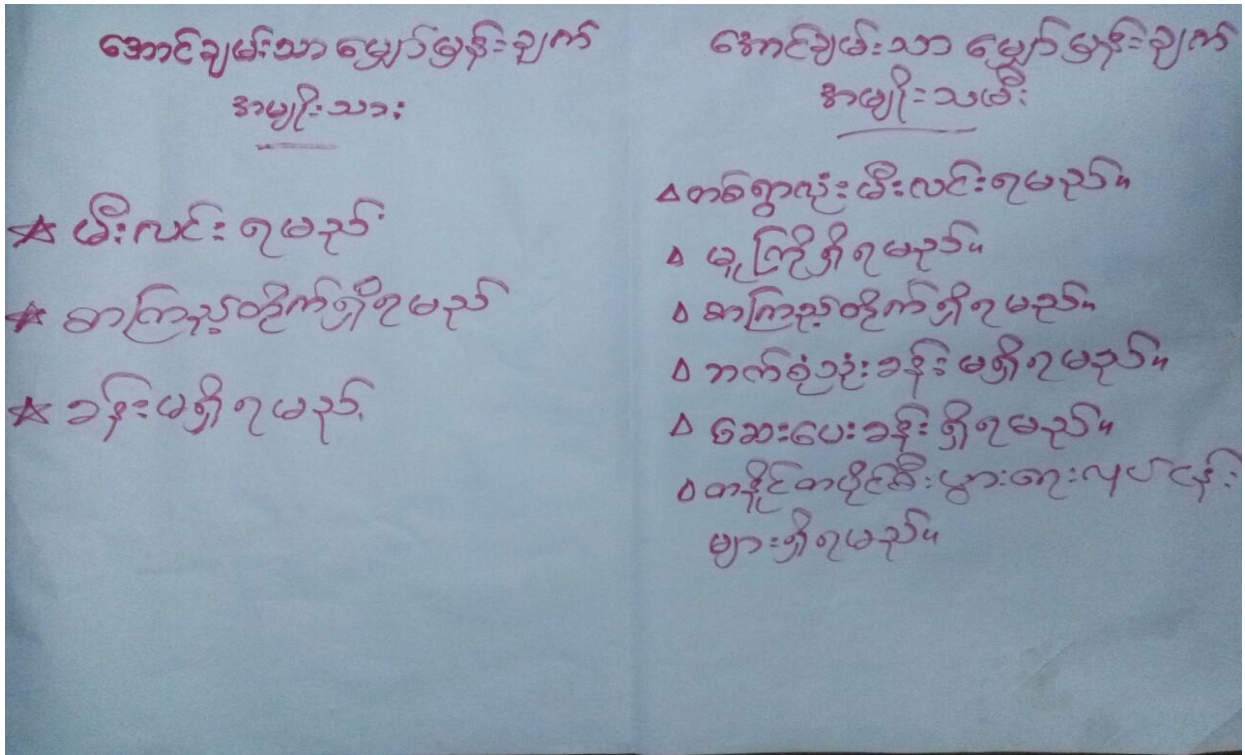 အောင်ချမ်းသာ မျှော်မှန်းချက်
အမျိုးသား
☆ မီးလင်းရမည်
☆ စာကြည့်တိုက်ရှိရမည်
☆ ခန်းမရှိရမည်
အောင်ချမ်းသာ မျှော်မှန်းချက်
အမျိုးသမီး
△ တစ်ရွာလုံးမီးလင်းရမည်။
△ မူကြိုရှိရမည်။
△ စာကြည့်တိုက်ရှိရမည်။
△ ဘက်စုံသုံးခန်းမရှိရမည်။
△ ဆေးပေးခန်းရှိရမည်။
△ တနိုင်တပိုင်စီးပွားရေးလုပ်ငန်း
များရှိရမည်။